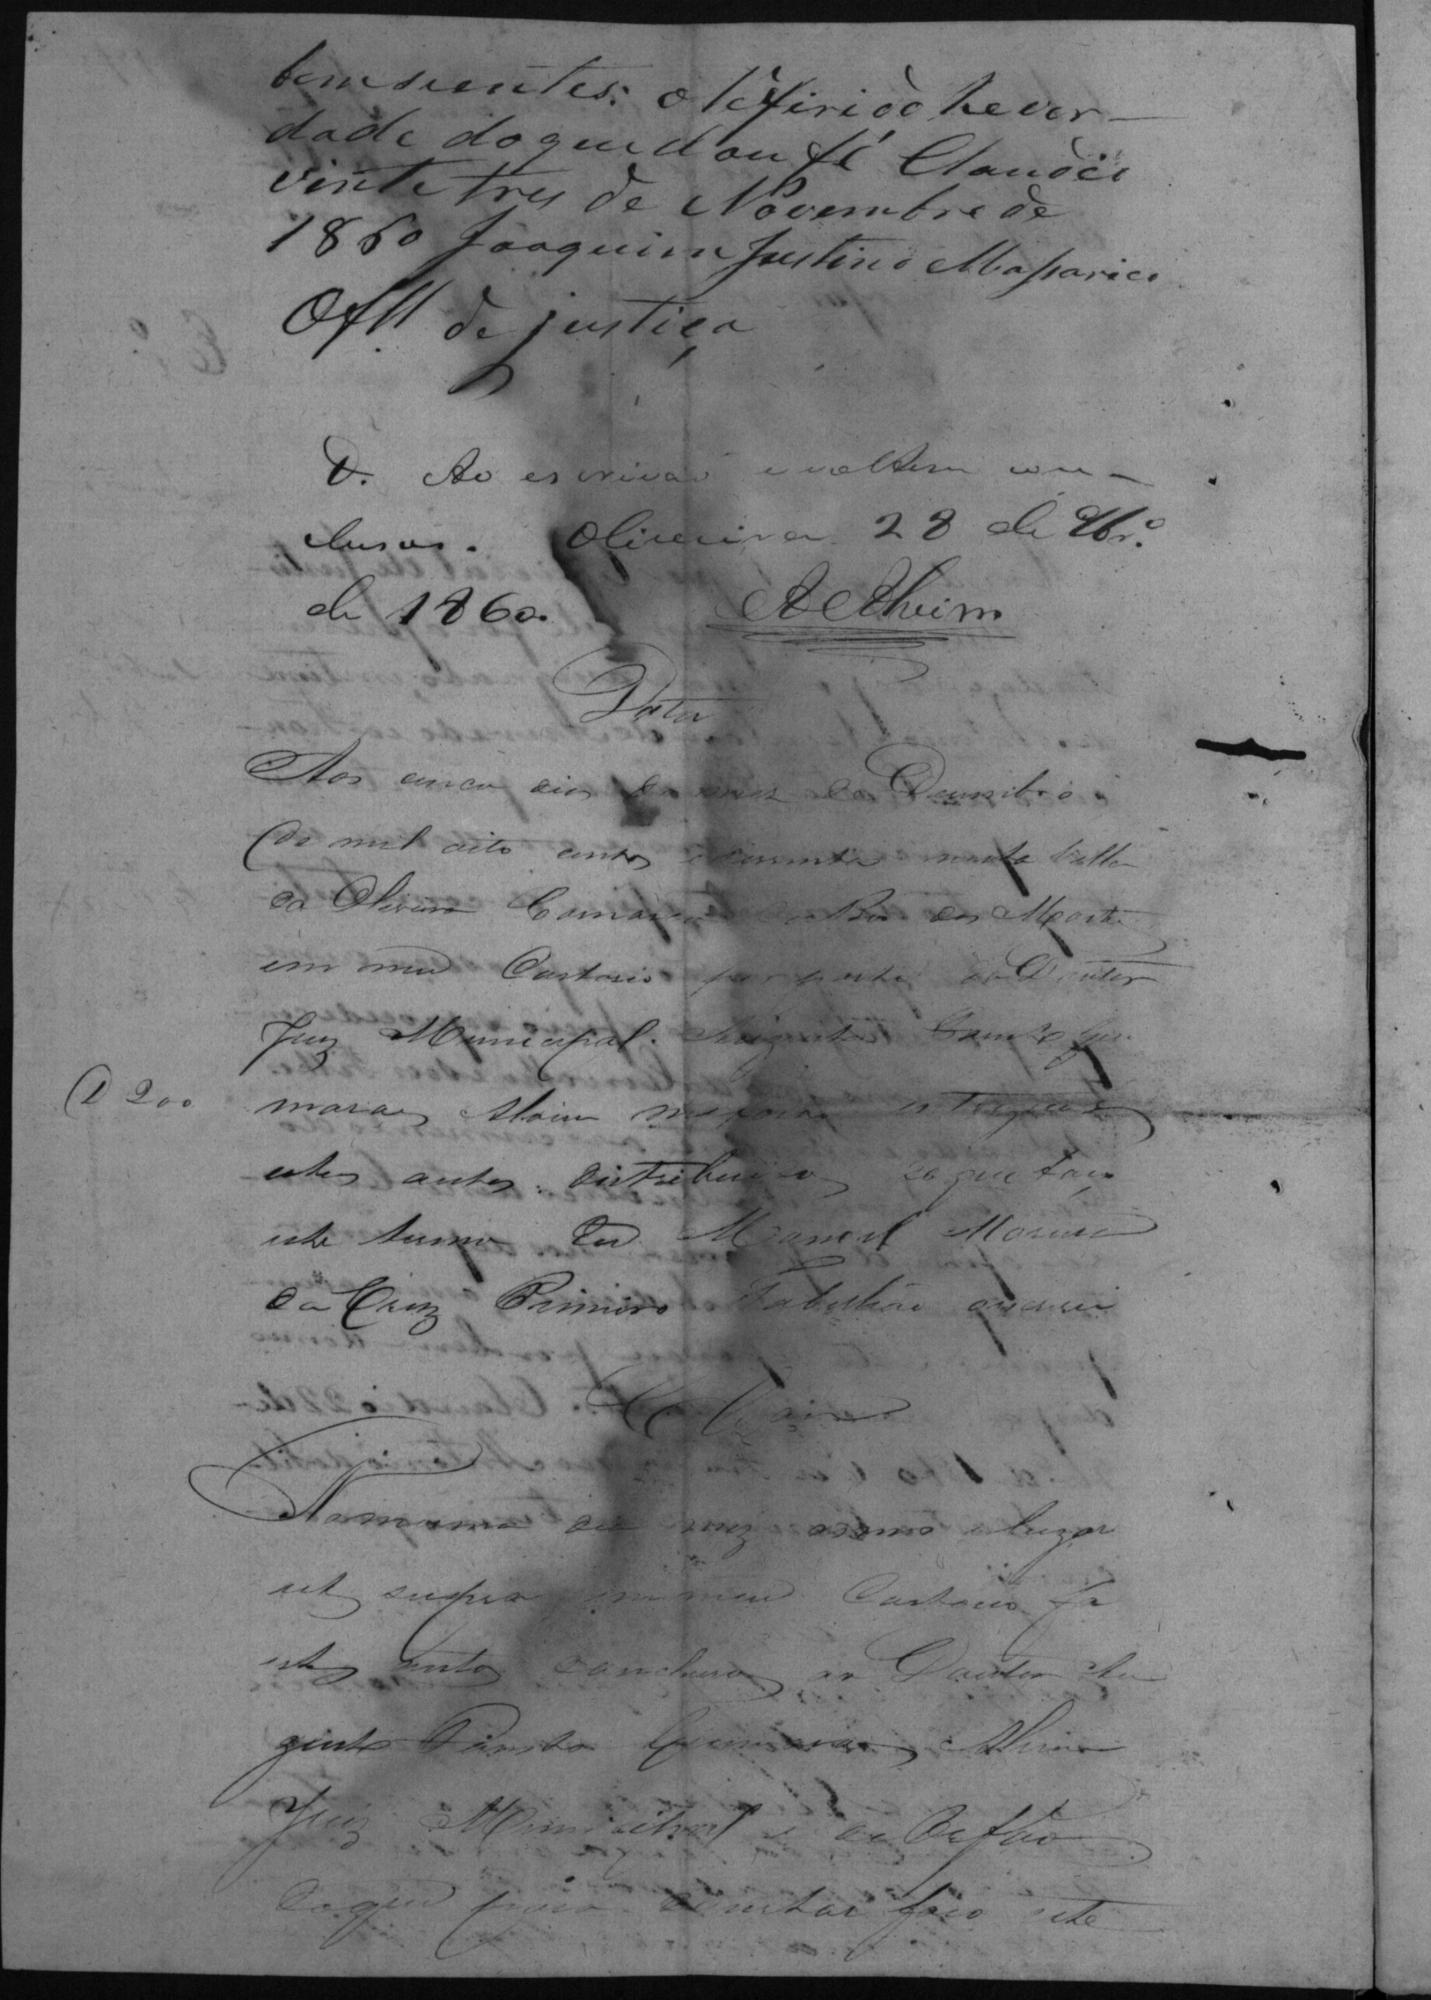 bem sientes: o refirido he ver-
dade do que dou fé Claudio
vinte tres de Novembro de
1860 Joaquim Justino
Off.l de justiça
D. Ao escrivão e voltem con-
clusos. Oliveira 28 de 9br.o
de 1860. A Alvim
Data
Aos cinco dias do mes de Desembro
de mil oito centos e secenta nesta Villa
da Oliveira Comarca do Rio das Mortes
em meo Cartorio por parte do Doutor
Juiz Municipal Augusto Gui-
D 200
maraes Alvim me forão entregues
estes autos distribuidos do que faço
este termo Eu Manoel Moreira
da Cruz Primeiro Tabelião escrevi
No mesmo dia mez e anno e lugar
ut supra em meu Cartorio fa
estes autos conclusos ao Doutor Au
gusto Guimaraes Alvim
Juiz Municipal e de Orfãos
do que para constar faço este